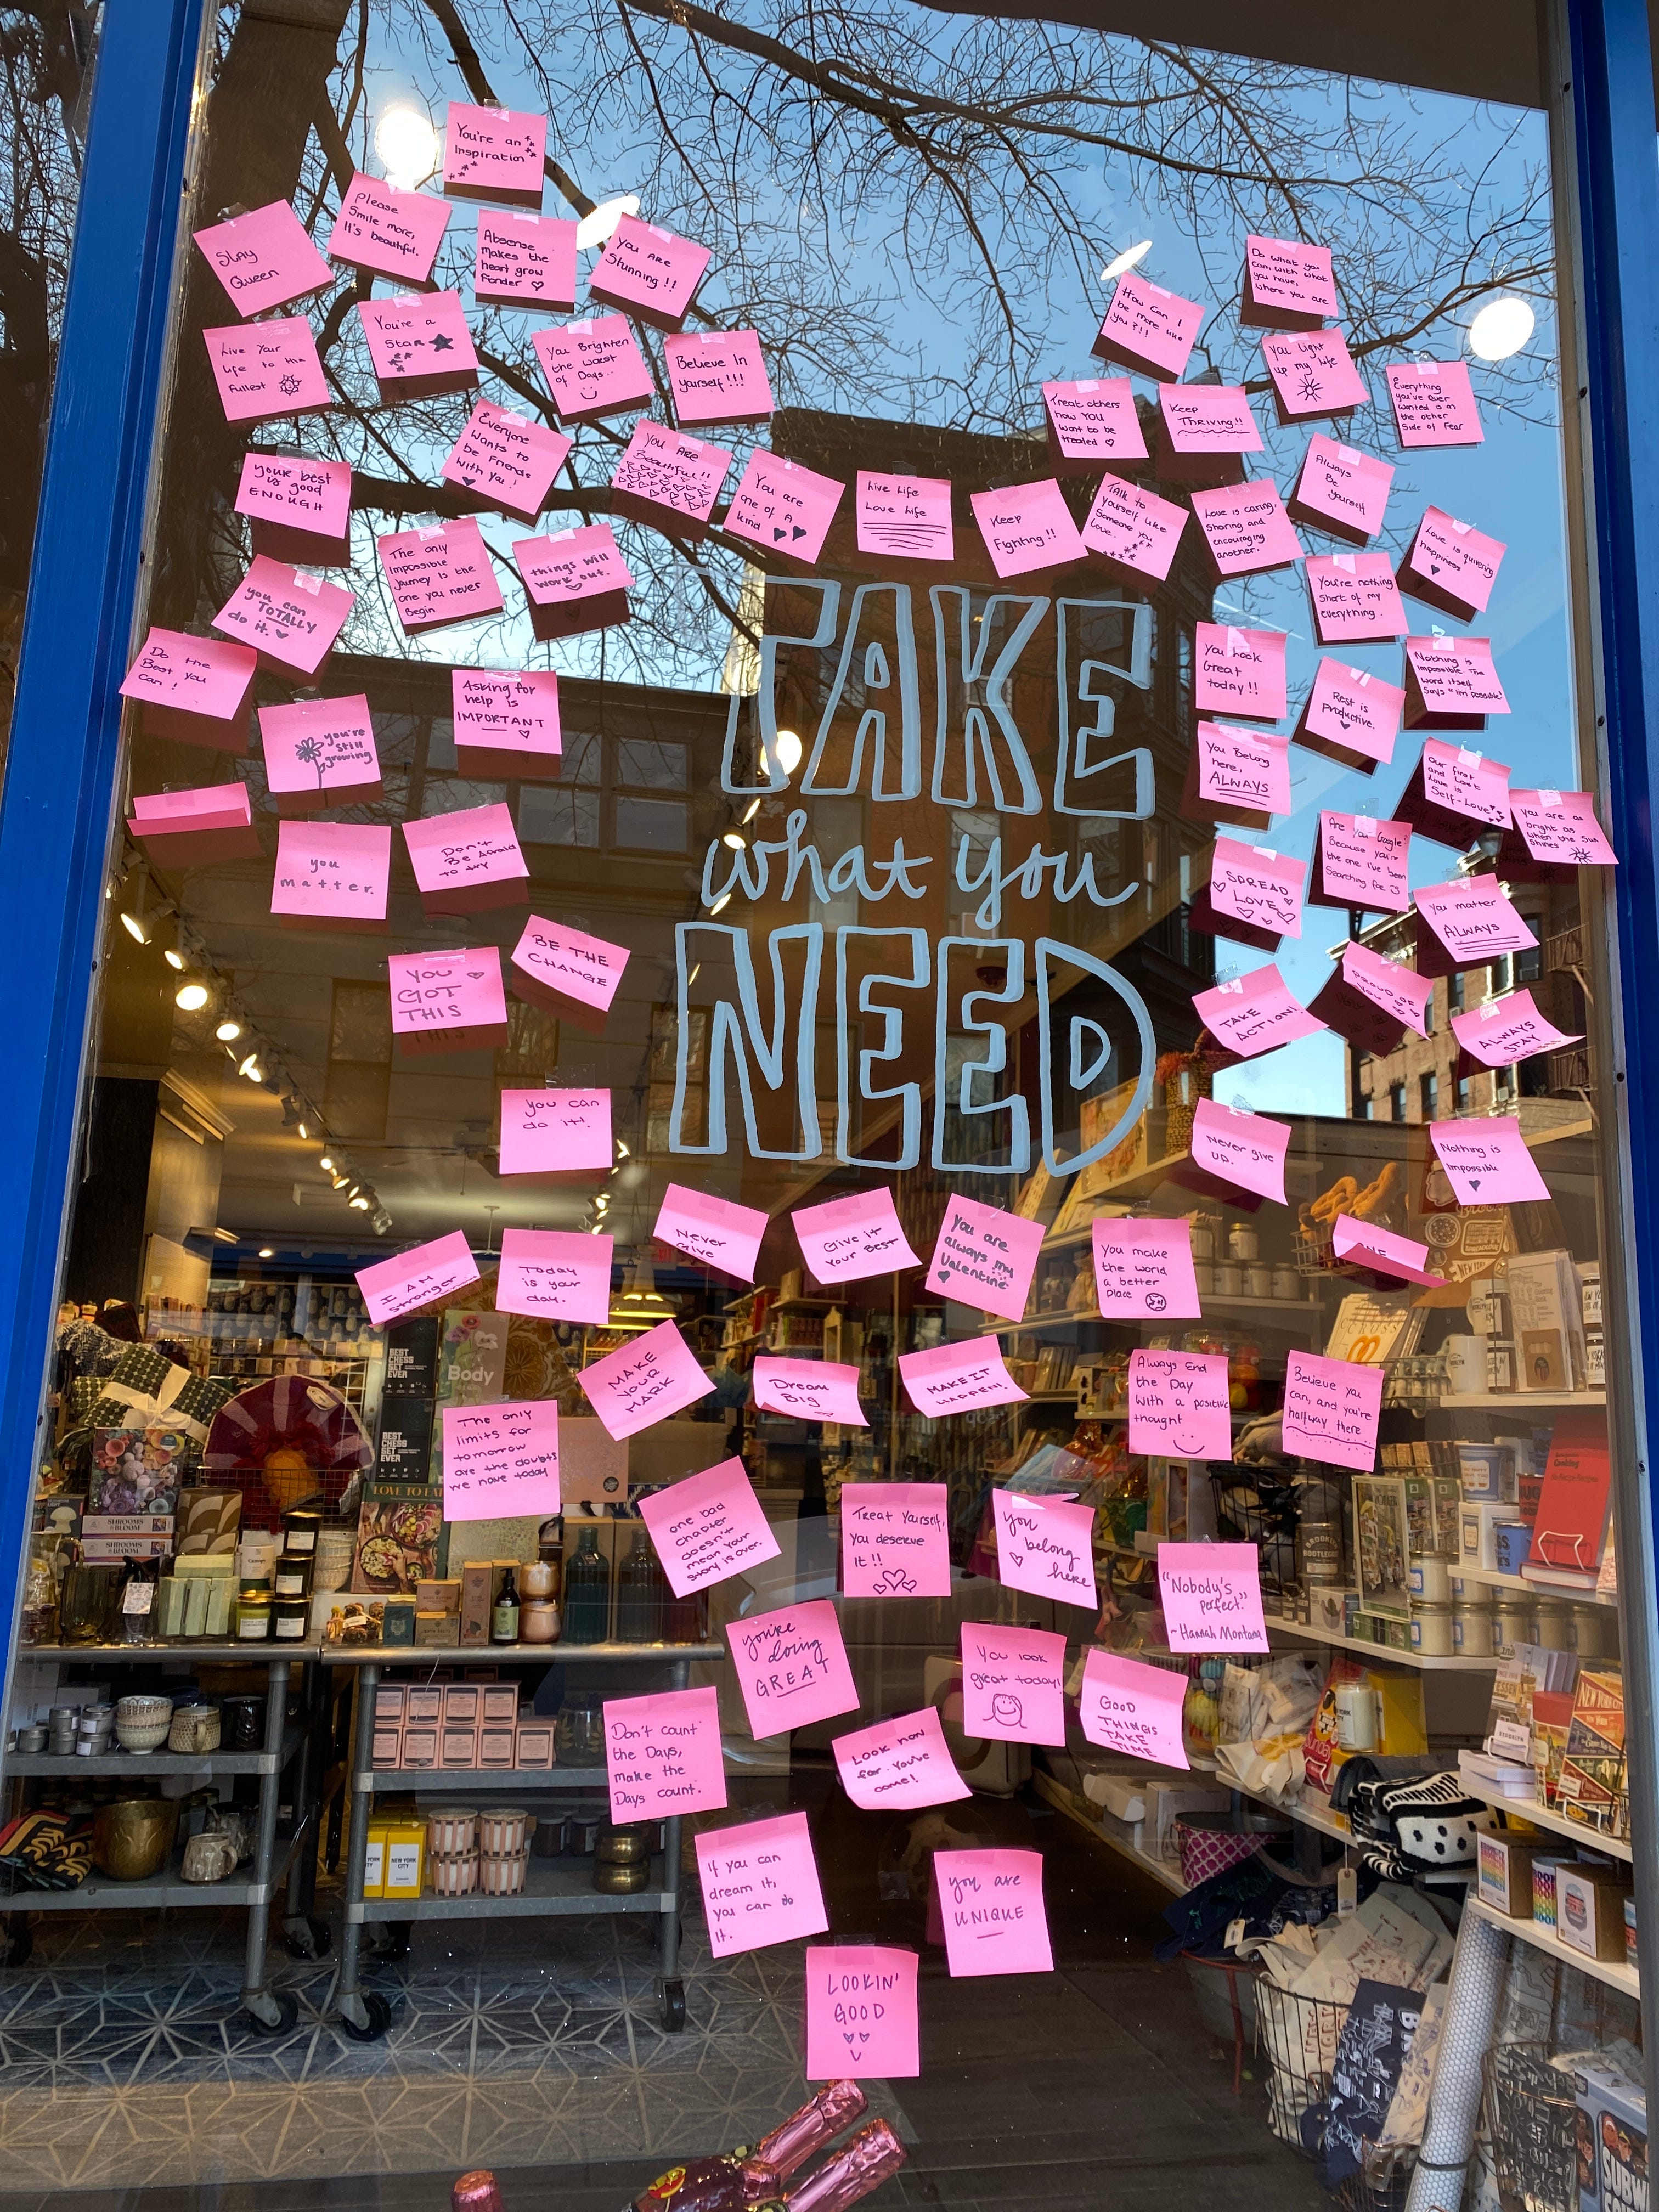 You're an
Inspiration
Please
Smile more,
It's beautiful.
Slay
Queen
Absense
makes the
heart grow
fonder
You ARE
Stunning!!
Do what you
can, with what
you have,
where you are
How can I
be more like
you?!!
Live Your
Life to the
Fullest
You're a
Star
You Brighten
the worst
of Days..
Believe In
yourself!!!
You light
up my life
Everything
you've Ever
wanted is on
the other
Side of Fear
Treat others
how YOU
want to be
treated
Keep
Thriving!!
Everyone
Wants to
be Friends
With you!
You ARE
Beautiful!!
your best
is good
ENOUGH
You are
one of A
kind
Live Life
Love Life
Keep
Fighting!!
Talk to
yourself like
Someone you
love.
Love is caring,
sharing and
encouraging
another.
Always
Be
yourself
Love is quivering
happiness
The only
impossible
journey is the
one you never
Begin
things will
work out.
you can
TOTALLY
do it.
You're nothing
short of my
everything.
Do the
Best you
Can!
Asking for
help is
IMPORTANT
You Look
Great
today!!
Nothing is
impossible The
word itself
Says "im possible"
Rest is
Productive.
you're
still
growing
TAKE
what you
NEED
You Belong
here,
ALWAYS
Our first
and last
love is
Self-Love
You are as
bright as
when the Sun
Shines
you
matter.
Don't
Be Afraid
to try
Are You Google?
Because you're
the one I've been
Searching for :)
SPREAD
LOVE
You matter
ALWAYS
YOU
GOT
THIS
BE THE
CHANGE
TAKE
ACTION!
PROUD OF
YOU
ALWAYS
STAY
You can
do it!
Never give
UP.
Nothing is
Impossible
I AM
stronger
Today
is your
day.
Never
Give
Give it
Your Best
You are
always my
Valentine
You make
the world
a better
Place
MAKE
YOUR
MARK
Dream
Big
MAKE IT
HAPPEN!
Always End
the Day
With a positive
thought
Believe you
can, and you're
halfway there
The only
limits for
tomorrow
are the doubts
we have today
one bad
chapter
doesn't
mean your
story is over.
Treat Yourself,
you deserve
It!!
you
belong
here
"Nobody's
perfect."
~Hannah Montana
you're
doing
GREAT
You look
great today!
GOOD
THINGS
TAKE
TIME
Don't count
the Days,
make the
Days count.
Look how
far you've
come!
If you can
dream it,
you can do
it.
you are
UNIQUE
LOOKIN'
GOOD
BEST
CHESS
SET
EVER
Body
BEST
CHESS
SET
EVER
LOVE TO EAT
SHROOMS
IN BLOOM
SHROOMS
IN BLOOM
NEW YORK
CITY
Cooking
NEW YORK